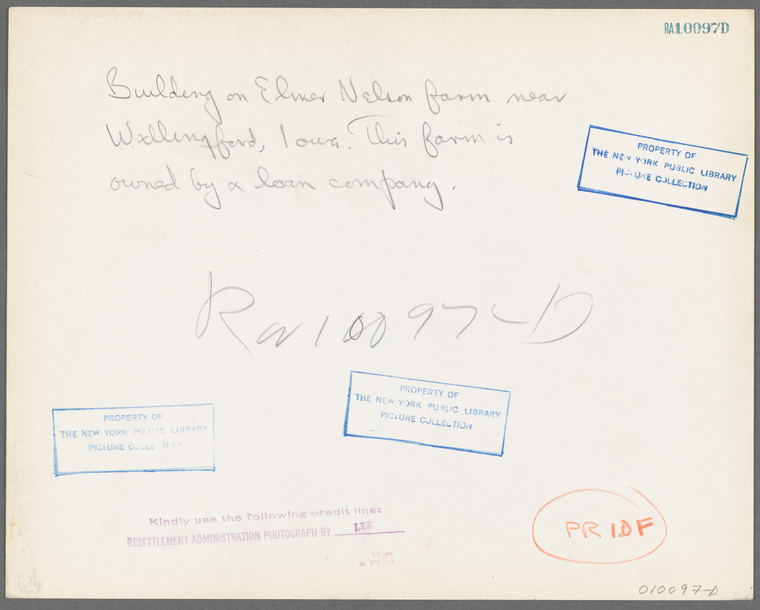 RA10097D
Building on Elmer Nelson farm near
Wallingford, Iowa. This farm is
owned by a loan company.
PROPERTY OF
THE NEW YORK PUBLIC LIBRARY
PICTURE COLLECTION
Ra 10097-D
PROPERTY OF
THE NEW YORK PUBLIC LIBRARY
PICTURE COLLECTION
PROPERTY OF
THE NEW YORK PUBLIC LIBRARY
PICTURE COLLECTION
Kindly use the following credit line:
RESETTLEMENT ADMINISTRATION PHOTOGRAPH BY LEE
PR IDF
010097-D